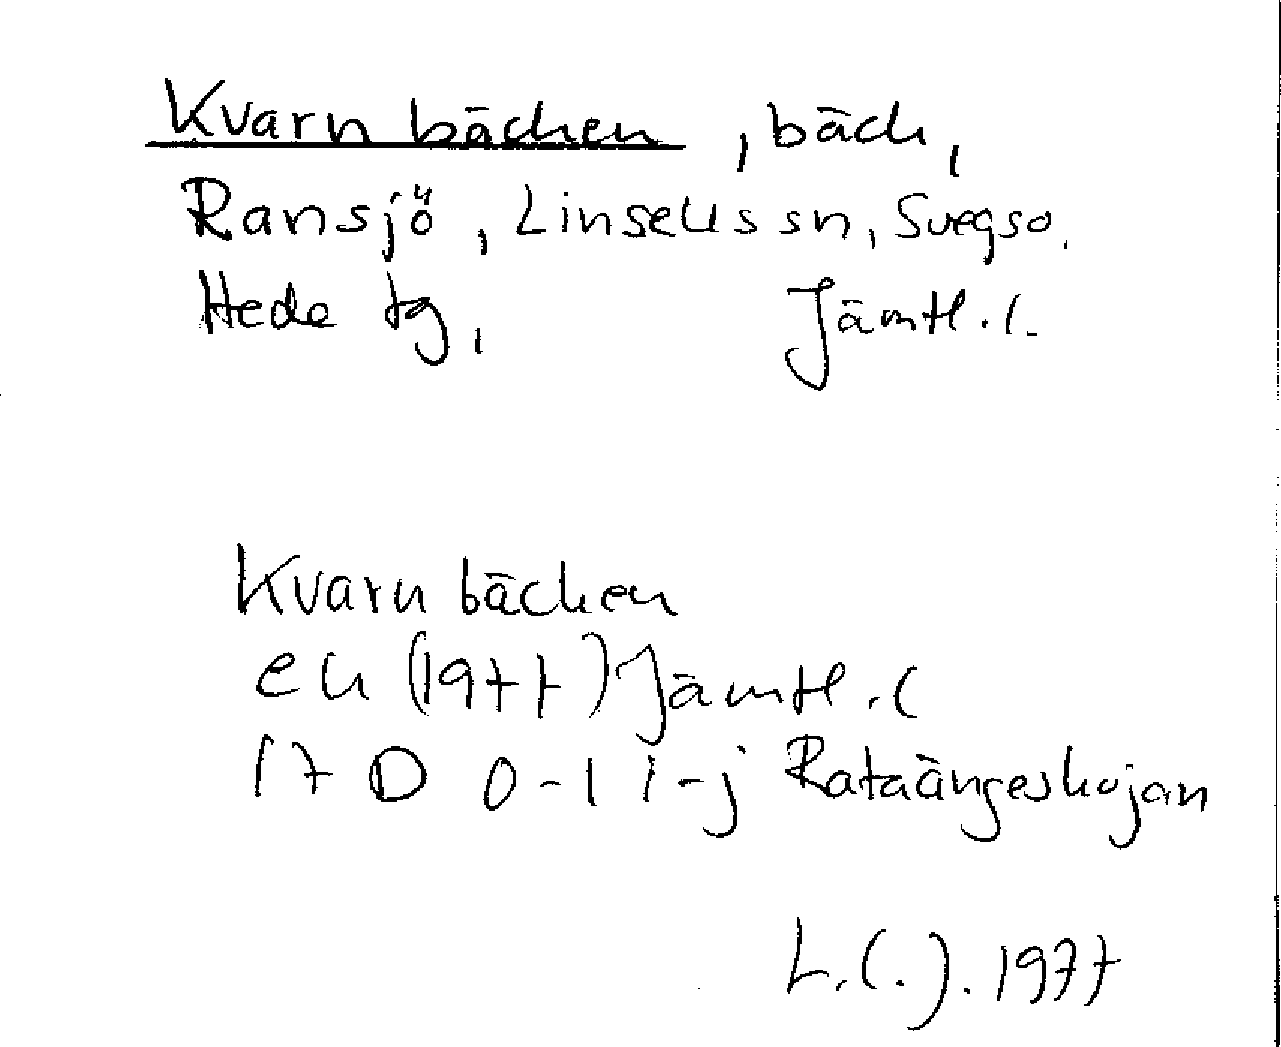 Kvarnbäcken, bäck,
Ransjö, Linsells sn, Svegs o.
Hede tg, Jämtl. l.
Kvarnbäcken
ek (1977) Jämtl. l
17 D 0-1 i-j Rataängeskojan
L.(.). 1977